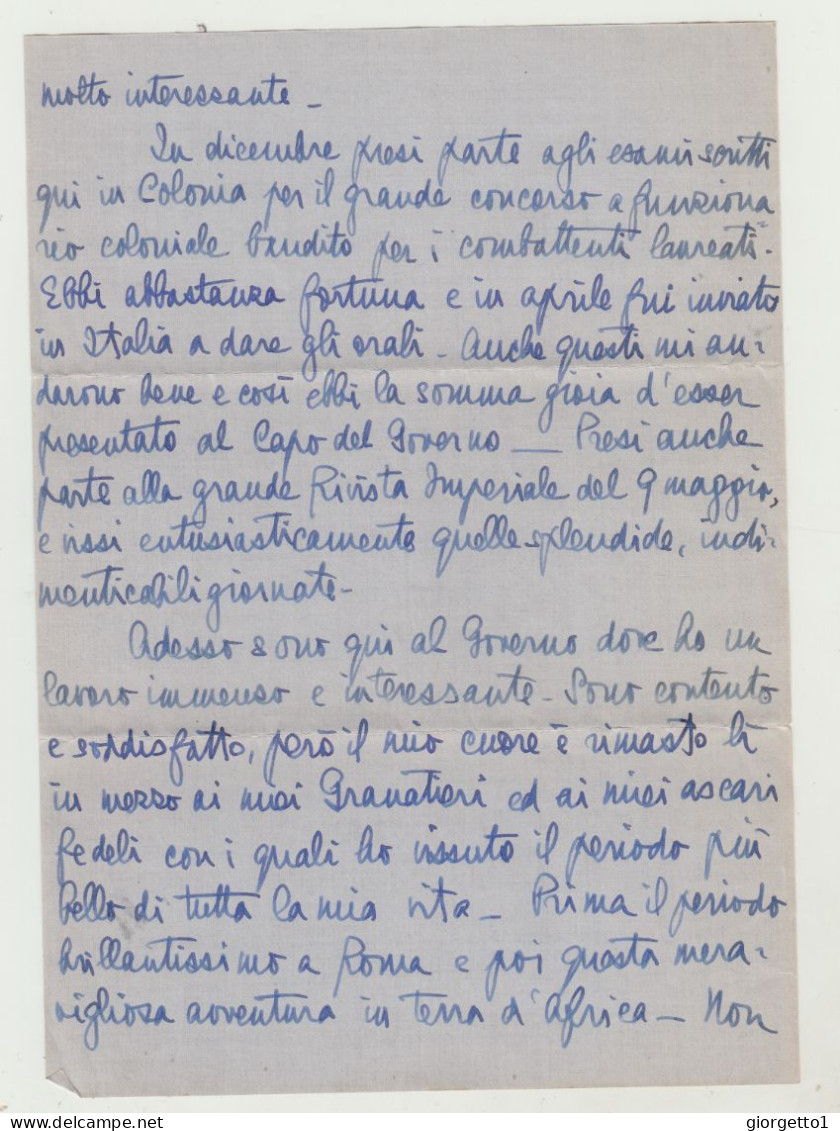 molto interessante -
In dicembre presi parte agli esami scritti
qui in Colonia per il grande concorso a funziona
rio coloniale bandito per i combattenti laureati.
Ebbi abbastanza fortuna e in aprile fui inviato
in Italia a dare gli orali - Anche questi mi an-
darono bene e così ebbi la somma gioia d'esser
presentato al Capo del Governo — Presi anche
parte alla grande Rivista Imperiale del 9 maggio,
e vissi entusiasticamente quelle splendide, indi-
menticabili giornate -
Adesso sono qui al Governo dove ho un
lavoro immenso e interessante - Sono contento
e soddisfatto, però il mio cuore è rimasto lì
in mezzo ai miei Granatieri ed ai miei ascari
fedeli con i quali ho vissuto il periodo più
bello di tutta la mia vita - Prima il periodo
brillantissimo a Roma e poi questa mera-
vigliosa avventura in terra d'Africa - Non
giorgetto1